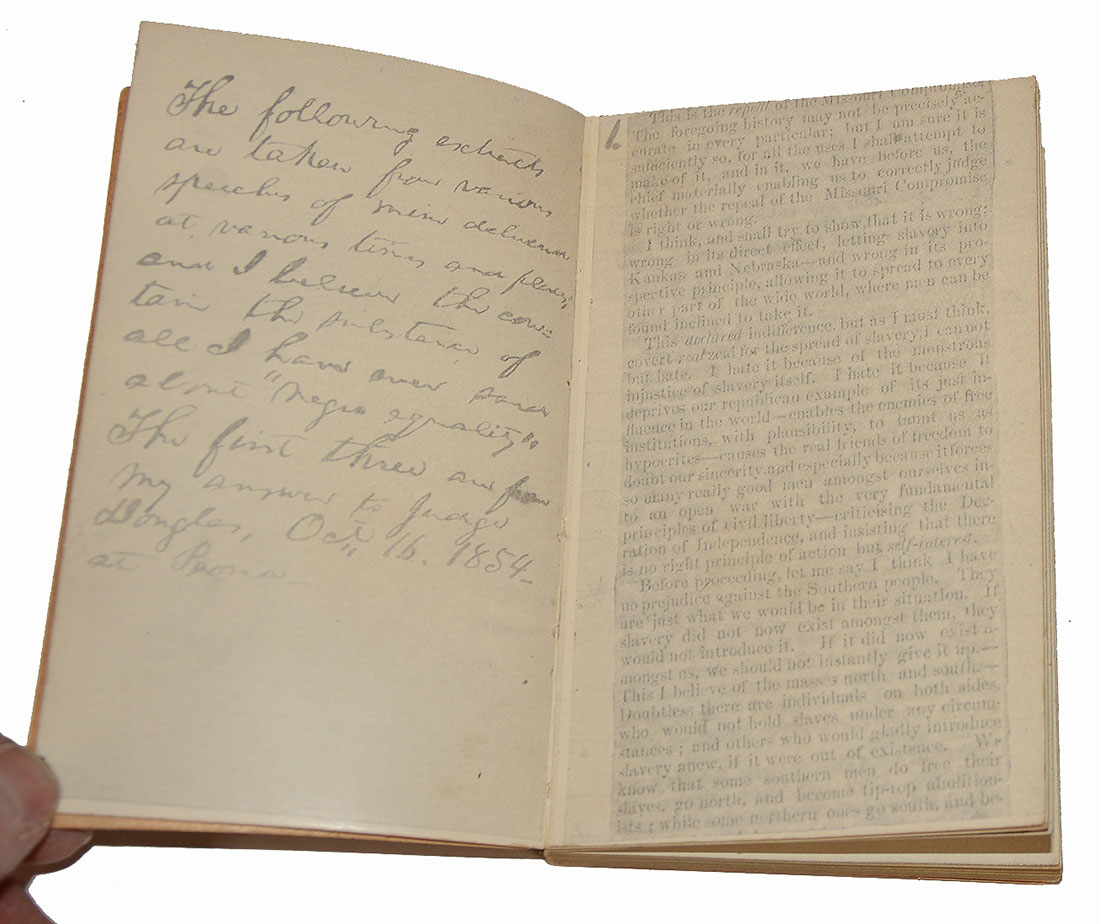 The following extracts
are taken from various
speeches of mine delivered
at various times and places,
and I believe they con-
tain the substance of
all I have ever said
about "negro equality"
The first three are from
my answer to Judge
Douglas, Oct. 16. 1854—
at Peoria—
1.
This is the repeal of the Missouri Compromise.
The foregoing history may not be precisely ac-
curate in every particular; but I am sure it is
sufficiently so, for all the uses I shall attempt to
make of it, and in it, we have before us, the
chief materially enabling us to correctly judge
whether the repeal of the Missouri Compromise
is right or wrong.
I think, and shall try to show, that it is wrong;
wrong in its direct effect, letting slavery into
Kankas and Nebraska—and wrong in its pro-
spective principle, allowing it to spread to every
other part of the wide world, where men can be
found inclined to take it.
This declared indifference, but as I must think,
covert real zeal for the spread of slavery, I can not
but hate. I hate it because of the monstrous
injustice of slavery itself. I hate it because it
deprives our republican example of its just in-
fluence in the world—enables the enemies of free
institutions, with plausibility, to taunt us as
hypocrites—causes the real friends of freedom to
doubt our sincerity, and especially because it forces
so many really good men amongst ourselves in-
to an open war with the very fundamental
principles of civil liberty—criticising the Dec-
ration of Independence, and insisting that there
is no right principle of action but self-interest.
Before proceeding, let me say I think I have
no prejudice against the Southern people. They
are just what we would be in their situation. If
slavery did not now exist amongst them, they
would not introduce it. If it did now exist a-
mongst us, we should not instantly give it up.—
This I believe of the masses north and south.—
Doubtless there are individuals on both sides,
who would not hold slaves under any circum-
stances; and others who would gladly introduce
slavery anew, if it were out of existence. We
know that some southern men do free their
slaves, go north, and become tip-top abolition-
ists; while some northern ones go south, and be-